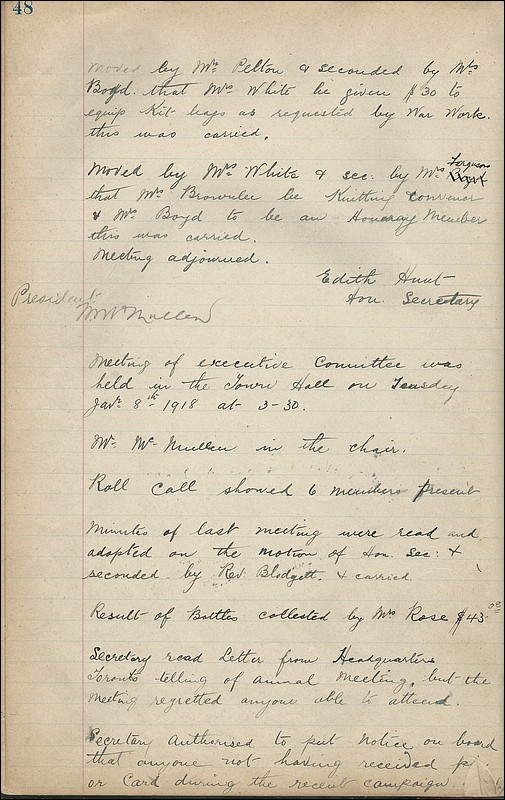 48
Moved by Mrs Pelton & seconded by Mrs
Boyd. that Mrs White be given $30 to
equip Kit bags as requested by War Work.
this was carried.
Moved by Mrs White & sec: by Mrs Ferguson
that Mrs Brownlee be Knitting Convenor
& Mrs Boyd to be an Honorary Member
this was carried.
Meeting adjourned.
Edith Hunt
Hon. Secretary
President
McMullen
Meeting of executive Committee was
held in the Town Hall on Teusday
Jan. 8th 1918 at 3-30.
Mr. McMullen in the chair.
Roll Call showed 6 members present
Minutes of last meeting were read and
adopted on the motion of Hon. Sec: &
seconded by Rev. Blodgett. & carried
Result of Bottles collected by Mrs Rose $43 00
Secretary read Letter from Headquarters
Toronto telling of annual Meeting, but the
Meeting regretted anyone able to attend.
Secretary Authorised to put Notice on board
that anyone not having received
or Card during the recent campaign